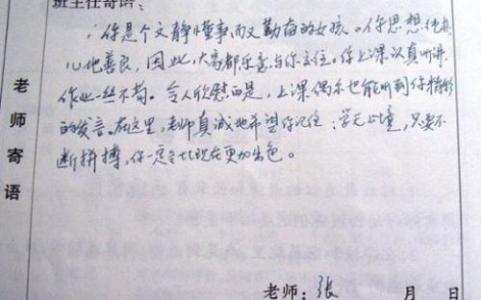 班主任寄语:
你是个文静懂事而又勤奋的女孩。你思想
心地善良,因此,大家都乐意与你交往。你上课认真听讲
作业一丝不苟。令人欣慰的是,上课偶尔也能听到你精彩
的发言。在这里,老师真诚地希望你记住:学无止境,只要不
断拼搏,你一定会比现在更加出色。
老师寄语
老师:张 月 日